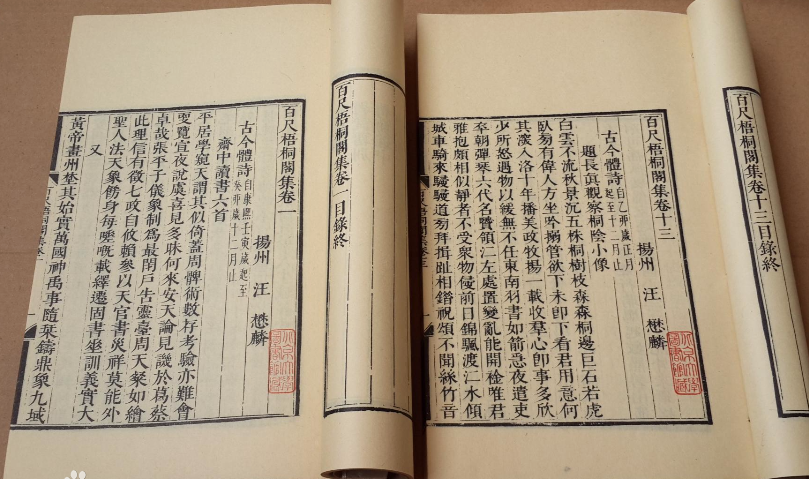 百尺梧桐閣集卷一目錄終
百尺梧桐閣集卷一
揚州 汪 懋麟
古今體詩 自康熙壬寅歲起至癸卯歲十二月止
齋中讀書六首
平居學窺天謂其似倚蓋周髀術數存考驗亦難會
要覽宣夜說虞喜見多昧何來安天論見譏於葛蔡
卓哉張平子儀象制為最閉戶告靈臺周天粲如繪
此理信有徵七政自攸賴參以天官書災祥莫能外
聖人法天象飭身每載繹遷固書坐訓義實大
又
黃帝畫州埜其始實萬國神禹事隨栞鑄鼎象九域
百尺梧桐閣集卷十三目錄終
百尺梧桐閣集卷十三
揚州 汪 懋麟
古今體詩 自乙卯歲正月起至十二月止
題長眞觀察桐陰小像
白雲不流秋景沉五株桐樹枝森森桐邊巨石若虎
臥旁有偉人方坐吟搦管欲下未卽下看君用意何
其深入洛十年播美政牧揚一載收羣心卽事多欣
少所怒遇物以緩無不任東南羽書如箭急夜遣吏
卒朝彈琴六代名賢領江左處置變亂能開襟唯君
雅抱頗相似靜者不受衆物侵前日錦颿渡江水傾
城車騎來駸駸道旁拜揖趾相錯祝頌不聞絲竹音